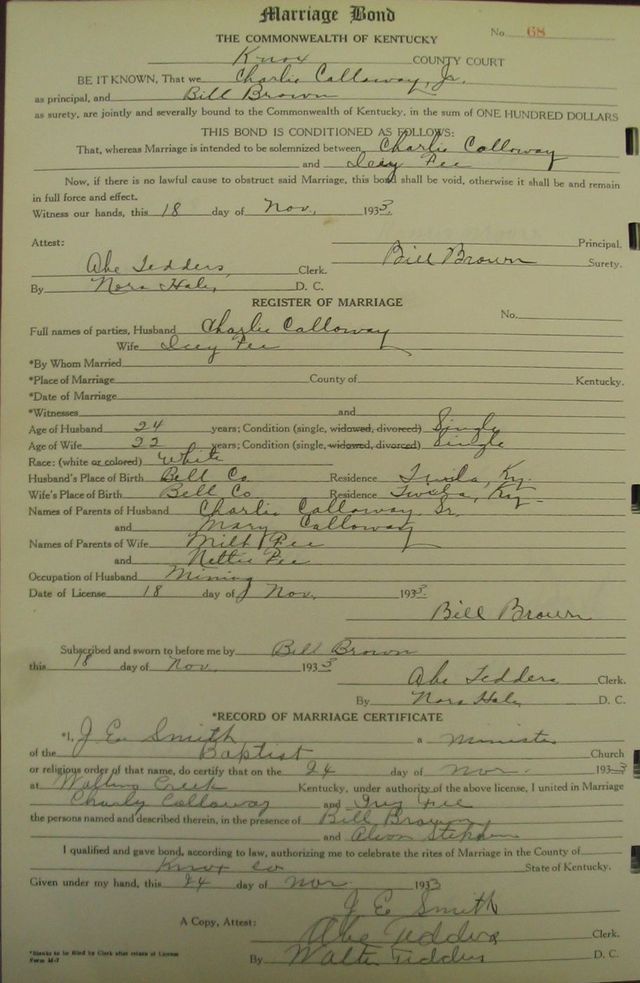 Marriage Bond
No. 68
THE COMMONWEALTH OF KENTUCKY
Knox COUNTY COURT
BE IT KNOWN, That we Charlie Calloway, Jr.
as principal, and Bill Brown
as surety, are jointly and severally bound to the Commonwealth of Kentucky, in the sum of ONE HUNDRED DOLLARS
THIS BOND IS CONDITIONED AS FOLLOWS:
That, whereas Marriage is intended to be solemnized between Charlie Calloway
and Icey Fee
Now, if there is no lawful cause to obstruct said Marriage, this bond shall be void, otherwise it shall be and remain
in full force and effect.
Witness our hands, this 18 day of Nov. 1933.
Attest: Principal.
Bill Brown Surety.
Abe Tedders, Clerk.
By Nora Hale, D. C.
REGISTER OF MARRIAGE
No.
Full names of parties, Husband Charlie Calloway
Wife Icey Fee
*By Whom Married
*Place of Marriage County of Kentucky.
*Date of Marriage
*Witnesses and
Age of Husband 24 years; Condition (single, widowed, divorced) Single
Age of Wife 22 years; Condition (single, widowed, divorced) Single
Race: (white or colored) White
Husband's Place of Birth Bell Co Residence Twila, Ky.
Wife's Place of Birth Bell Co Residence Twila, Ky.
Names of Parents of Husband Charlie Calloway Sr.
and Mary Calloway
Names of Parents of Wife Milt Fee
and Nettie Fee
Occupation of Husband Mining
Date of License 18 day of Nov. 1933
Bill Brown
Subscribed and sworn to before me by Bill Brown
this 18 day of Nov 1933
Abe Tedders Clerk.
By Nora Hale, D. C.
*RECORD OF MARRIAGE CERTIFICATE
*I, J E Smith a Minister
of the Baptist Church
or religious order of that name, do certify that on the 24 day of Nov. 1933
at Creek Kentucky, under authority of the above license, I united in Marriage
Charly Calloway and Fee
the persons named and described therein, in the presence of Bill Brown
and
I qualified and gave bond, according to law, authorizing me to celebrate the rites of Marriage in the County of
Knox Co State of Kentucky.
Given under my hand, this 24 day of Nov 1933
J E Smith
A Copy, Attest: Abe Tedders Clerk.
By Walter Tedders D. C.
*Blanks to be filled by Clerk after return of License
Form M-7